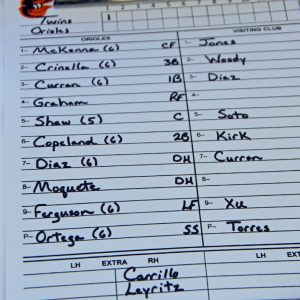 Twins
Orioles
1 2
ORIOLES VISITING CLUB
1- McKenna (6) CF 1- Jones
2- Crinella (6) 3B 2- Woody
3- Curran (6) 1B 3- Diaz
4- Graham RF 4-
5- Shaw (5) C 5- Soto
6- Copeland (6) 2B 6- Kirk
7- Diaz (6) DH 7- Curran
8- Moquete DH 8-
9- Ferguson (6) LF 9- Xu
P- Ortega (6) SS P- Torres
LH EXTRA RH LH EXTRA
Carrillo
Leyritz